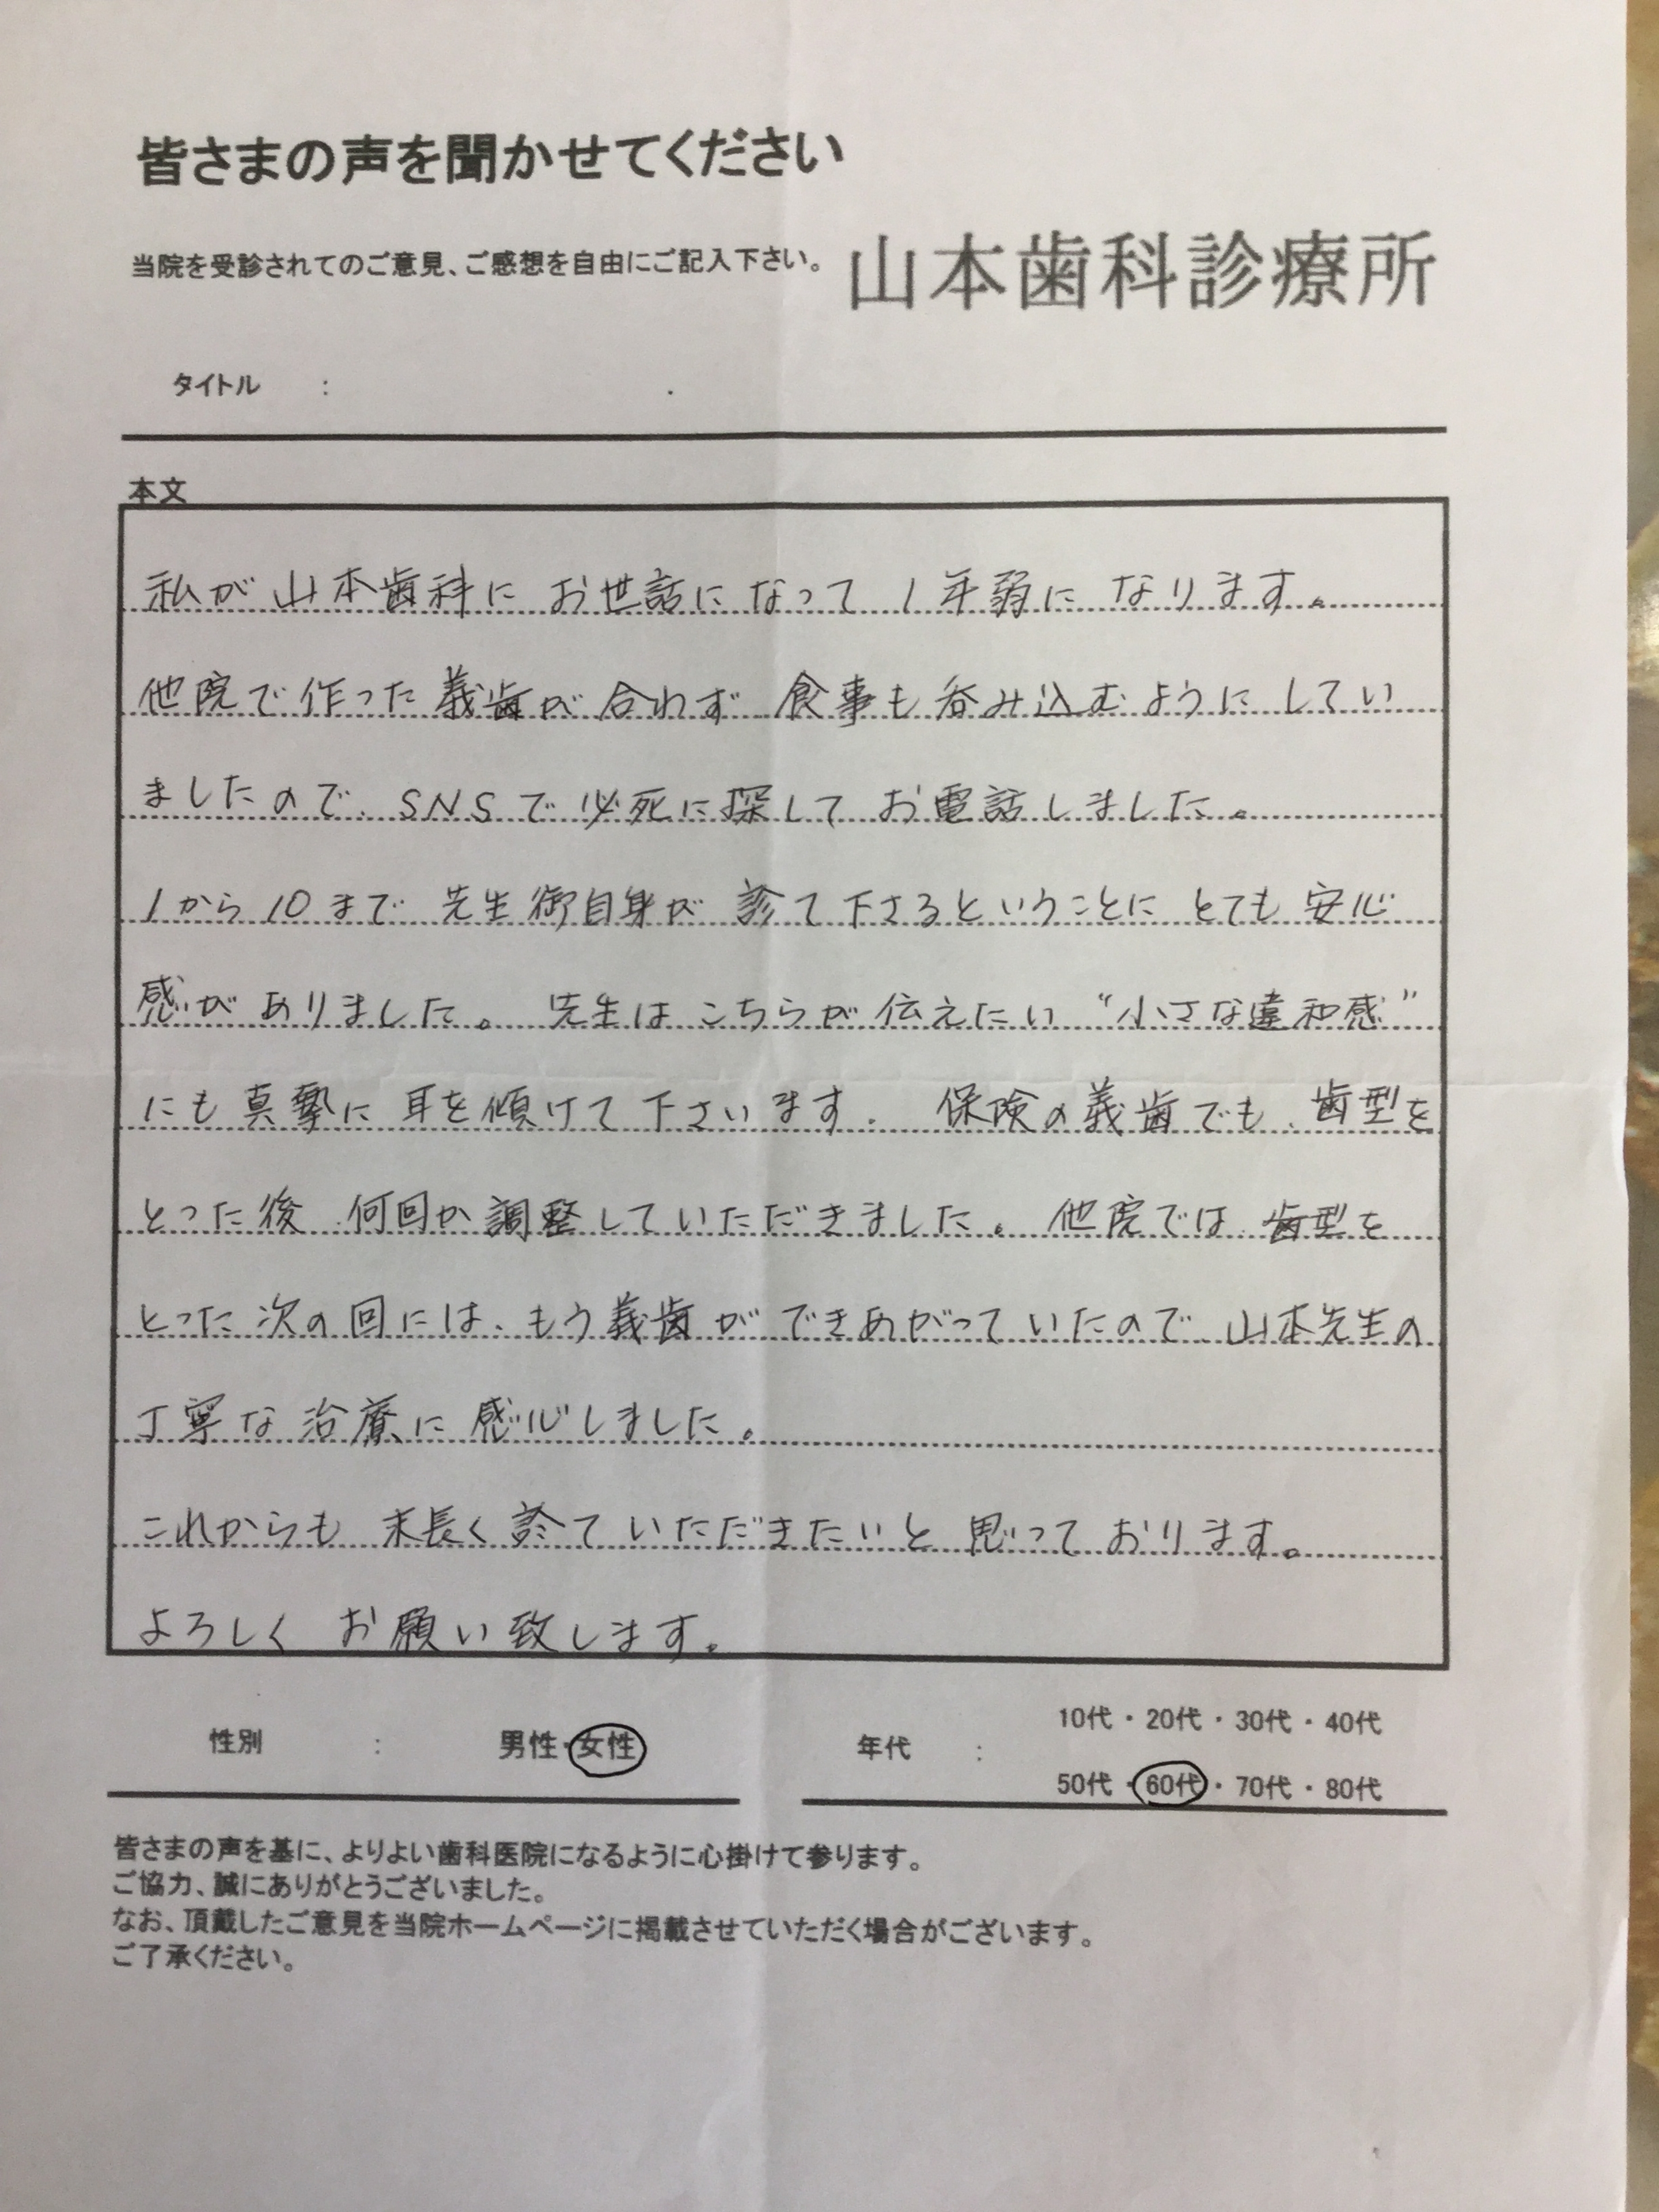 皆さまの声を聞かせてください
当院を受診されてのご意見、ご感想を自由にご記入下さい。 山本歯科診療所
タイトル :
本文
私が山本歯科に お世話になって 1年弱に なります。
他院で作った義歯が合わず 食事も呑み込むようにしてい
ましたので、SNSで必死に探して お電話しました。
1から10まで 先生御自身が 診て下さるということに とても安心
感がありました。 先生はこちらが伝えたい “小さな違和感”
にも真摯に耳を傾けて下さいます. 保険の義歯でも、歯型を
とった後、何回か調整していただきました。 他院では、歯型を
とった次の回には、もう義歯ができあがっていたので、山本先生の
丁寧な治療に感心しました。
これからも 末長く診ていただきたいと思っております。
よろしく お願い致します。
性別 : 男性・女性 年代 : 10代・20代・30代・40代
50代・60代・70代・80代
皆さまの声を基に、よりよい歯科医院になるように心掛けて参ります。
ご協力、誠にありがとうございました。
なお、頂戴したご意見を当院ホームページに掲載させていただく場合がございます。
ご了承ください。